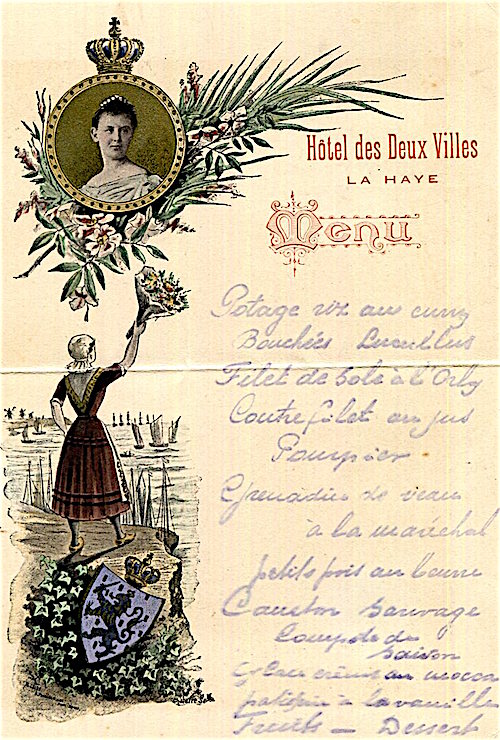 Hôtel des Deux Villes
LA HAYE
Menu
Potage riz au curry
Bouchées Lucullus
Filet de Sole à l'Orly
Contrefilet au jus
Pourpier
Grenadin de veau
à la maréchal
petits pois au beurre
Caneton Sauvage
Compote de
saison
Glace crème au mocca
à la vanille
Fruits — Dessert